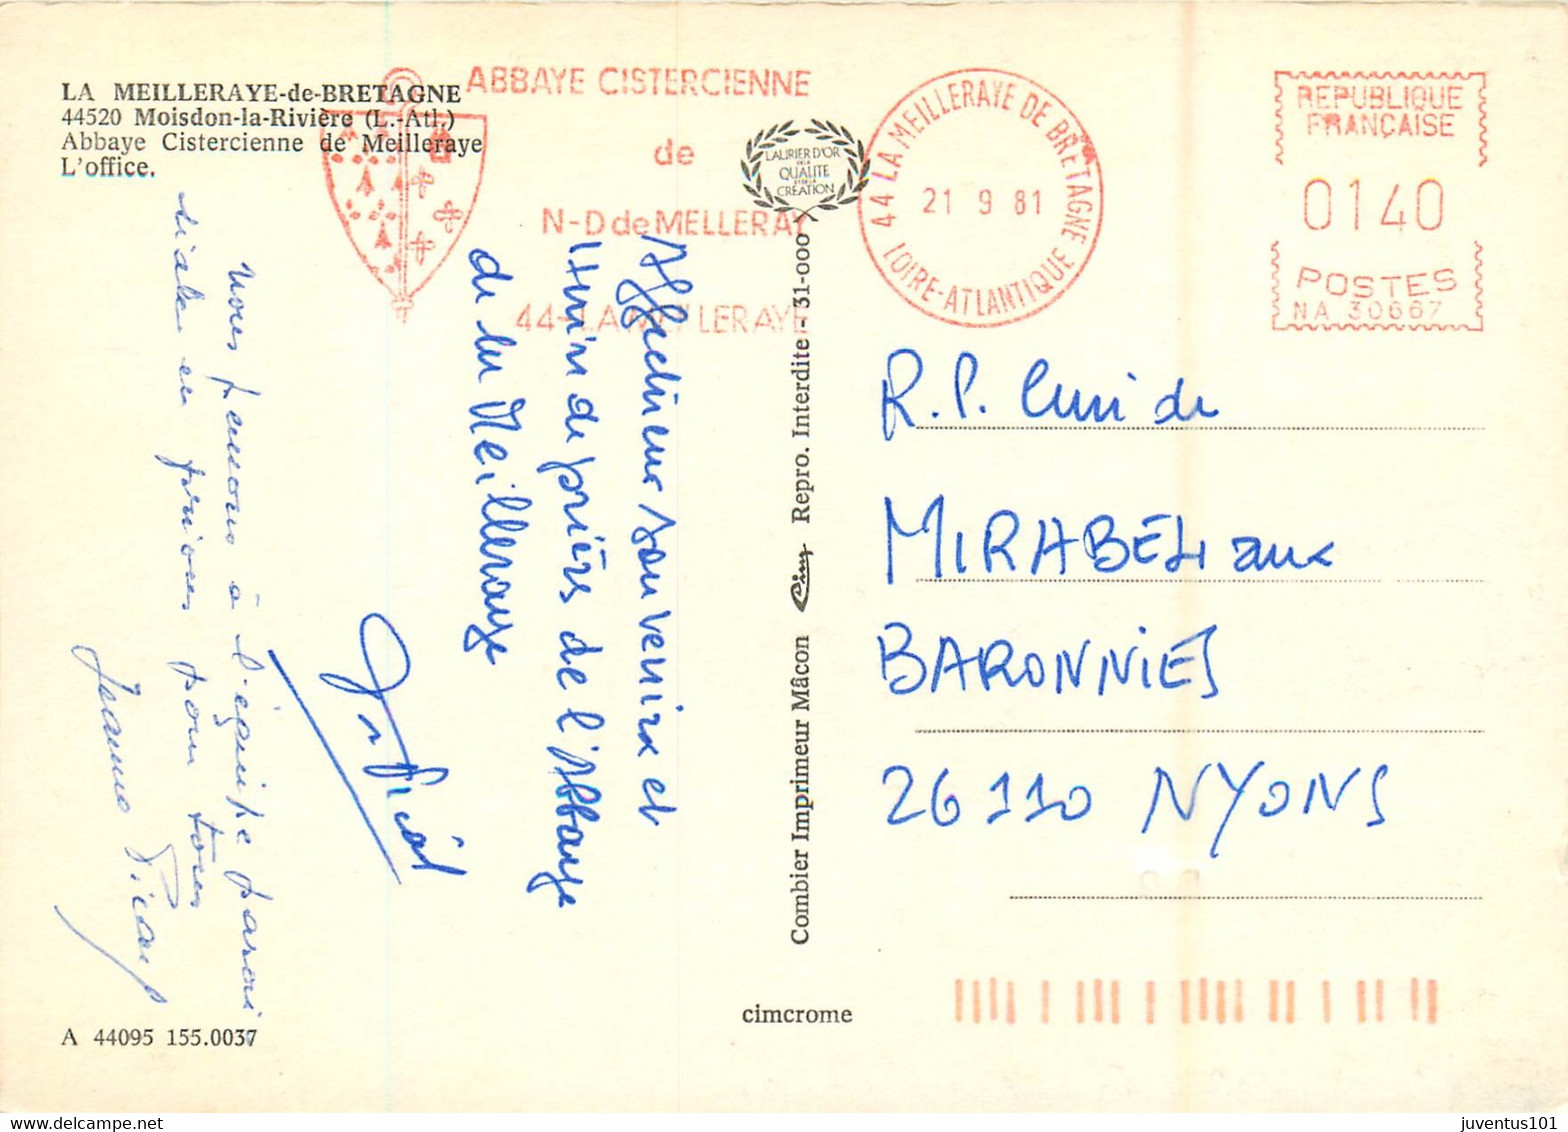 LA MEILLERAYE-de-BRETAGNE
44520 Moisdon-la-Rivière (L.-Atl.)
Abbaye Cistercienne de Meilleraye
L'office.
ABBAYE CISTERCIENNE
de
N-D de MELLERAY
44-LA MEILLERAYE
LAURIER D'OR
DE LA
QUALITE
ET DE LA
CRÉATION
44 LA MEILLERAYE DE BRETAGNE
21 9 81
LOIRE-ATLANTIQUE
REPUBLIQUE
FRANÇAISE
0140
POSTES
NA 30667
Affectueux souvenirs et
Union de prières de l'Abbaye
de la Meilleraye
Nous pensons à l'équipe parois
siale en prions pour tous
Jeanne
Combier Imprimeur Mâcon Cim Repro. Interdite - 31-000
R.P. Curé de
MIRABEL aux
BARONNIES
26110 NYONS
cimcrome
A 44095 155.0037
juventus101